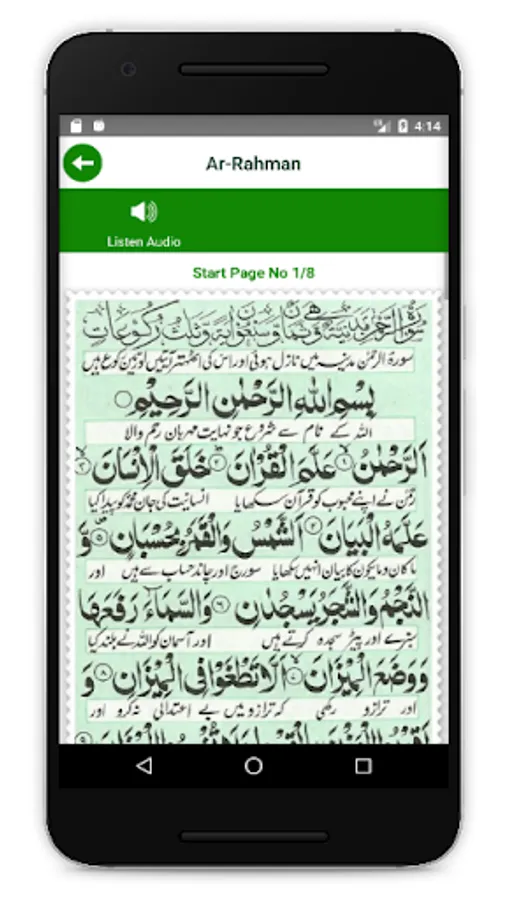 4:14
Ar-Rahman
Listen Audio
Start Page No 1/8
سورۃ الرحمٰن مدینہ میں نازل ہوئی اور اس کی اٹھہتر آیتیں اور تین رکوع ہیں
بِسْمِ اللّٰهِ الرَّحْمٰنِ الرَّحِيْمِ
اللہ کے نام سے شروع جو نہایت مہربان رحم والا
اَلرَّحْمٰنُ ۙ﴿۱﴾ عَلَّمَ الْقُرْاٰنَ ؕ﴿۲﴾ خَلَقَ الْاِنْسَانَ ۙ﴿۳﴾
رحمٰن نے اپنے محبوب کو قرآن سکھایا انسانیت کی جان محمد کو پیدا کیا
عَلَّمَهُ الْبَيَانَ ﴿۴﴾ اَلشَّمْسُ وَالْقَمَرُ بِحُسْبَانٍ ﴿۵﴾ وَّ
ما کان وما یکون کا بیان انہیں سکھایا سورج اور چاند حساب سے ہیں اور
النَّجْمُ وَالشَّجَرُ يَسْجُدٰنِ ﴿۶﴾ وَالسَّمَآءَ رَفَعَهَا
سبزے اور پیڑ سجدہ کرتے ہیں اور آسمان کو اللہ نے بلند کیا
وَوَضَعَ الْمِيْزَانَ ۙ﴿۷﴾ اَلَّا تَطْغَوْا فِی الْمِيْزَانِ ﴿۸﴾ وَ
اور ترازو رکھی کہ ترازو میں بے اعتدالی نہ کرو اور